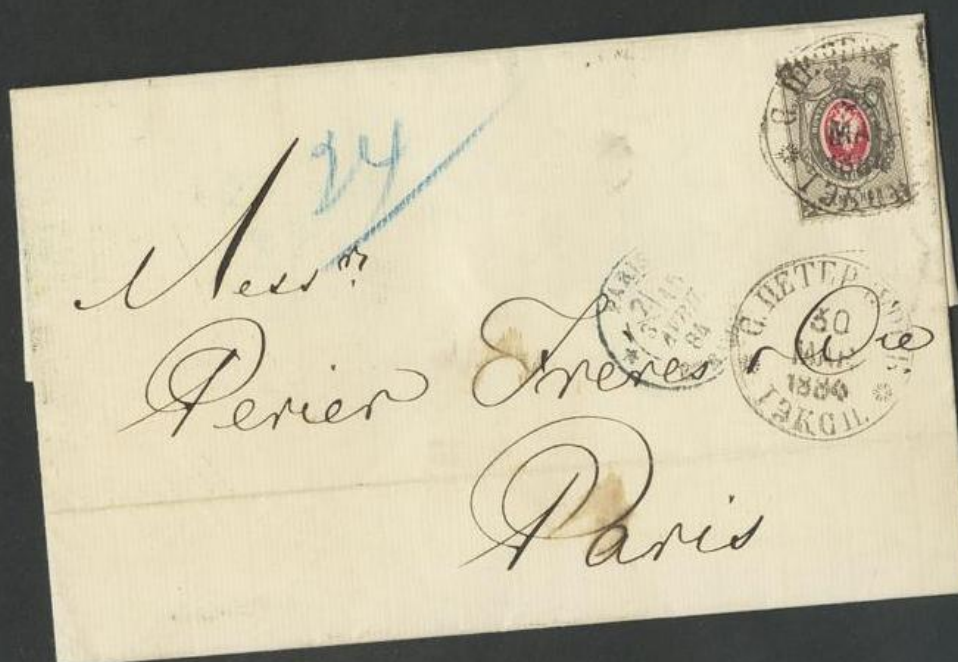 24
Messrs
Perier Freres & Cie
Paris
PARIS
84
С. ПЕТЕР
30
МАР
1884
1 ЭКСП.